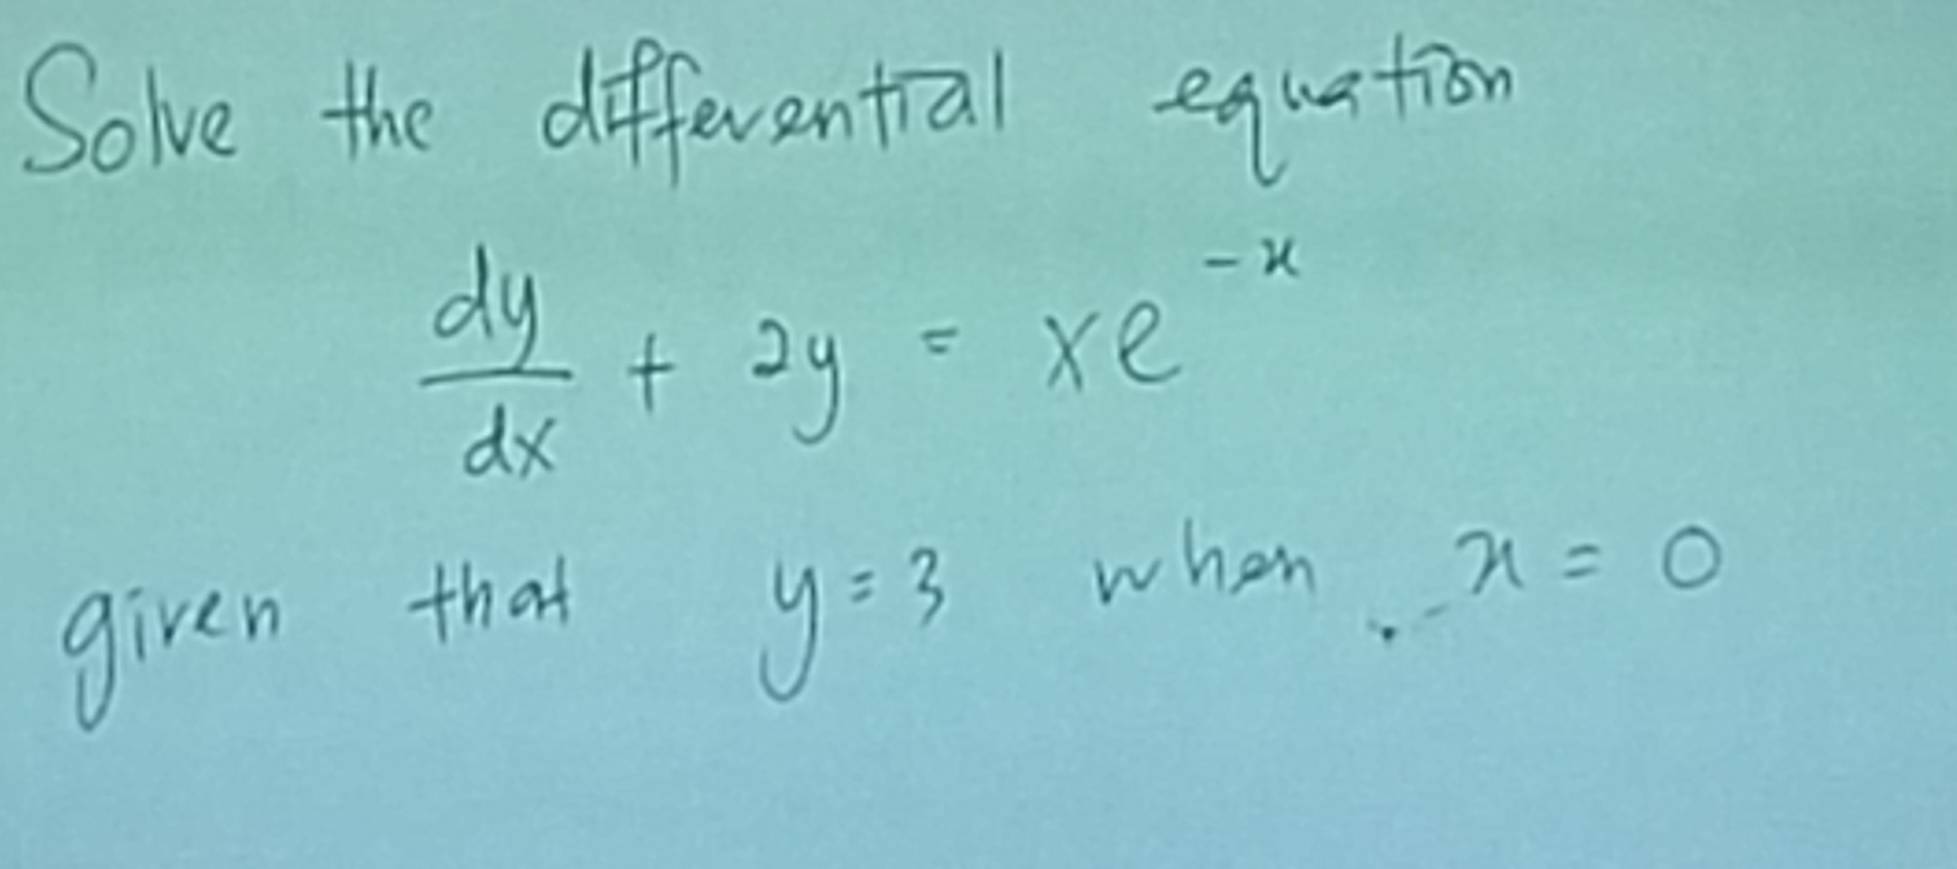 Solve the differential equation
dy/dx + 2y = xe^-x
given that y = 3 when x = 0